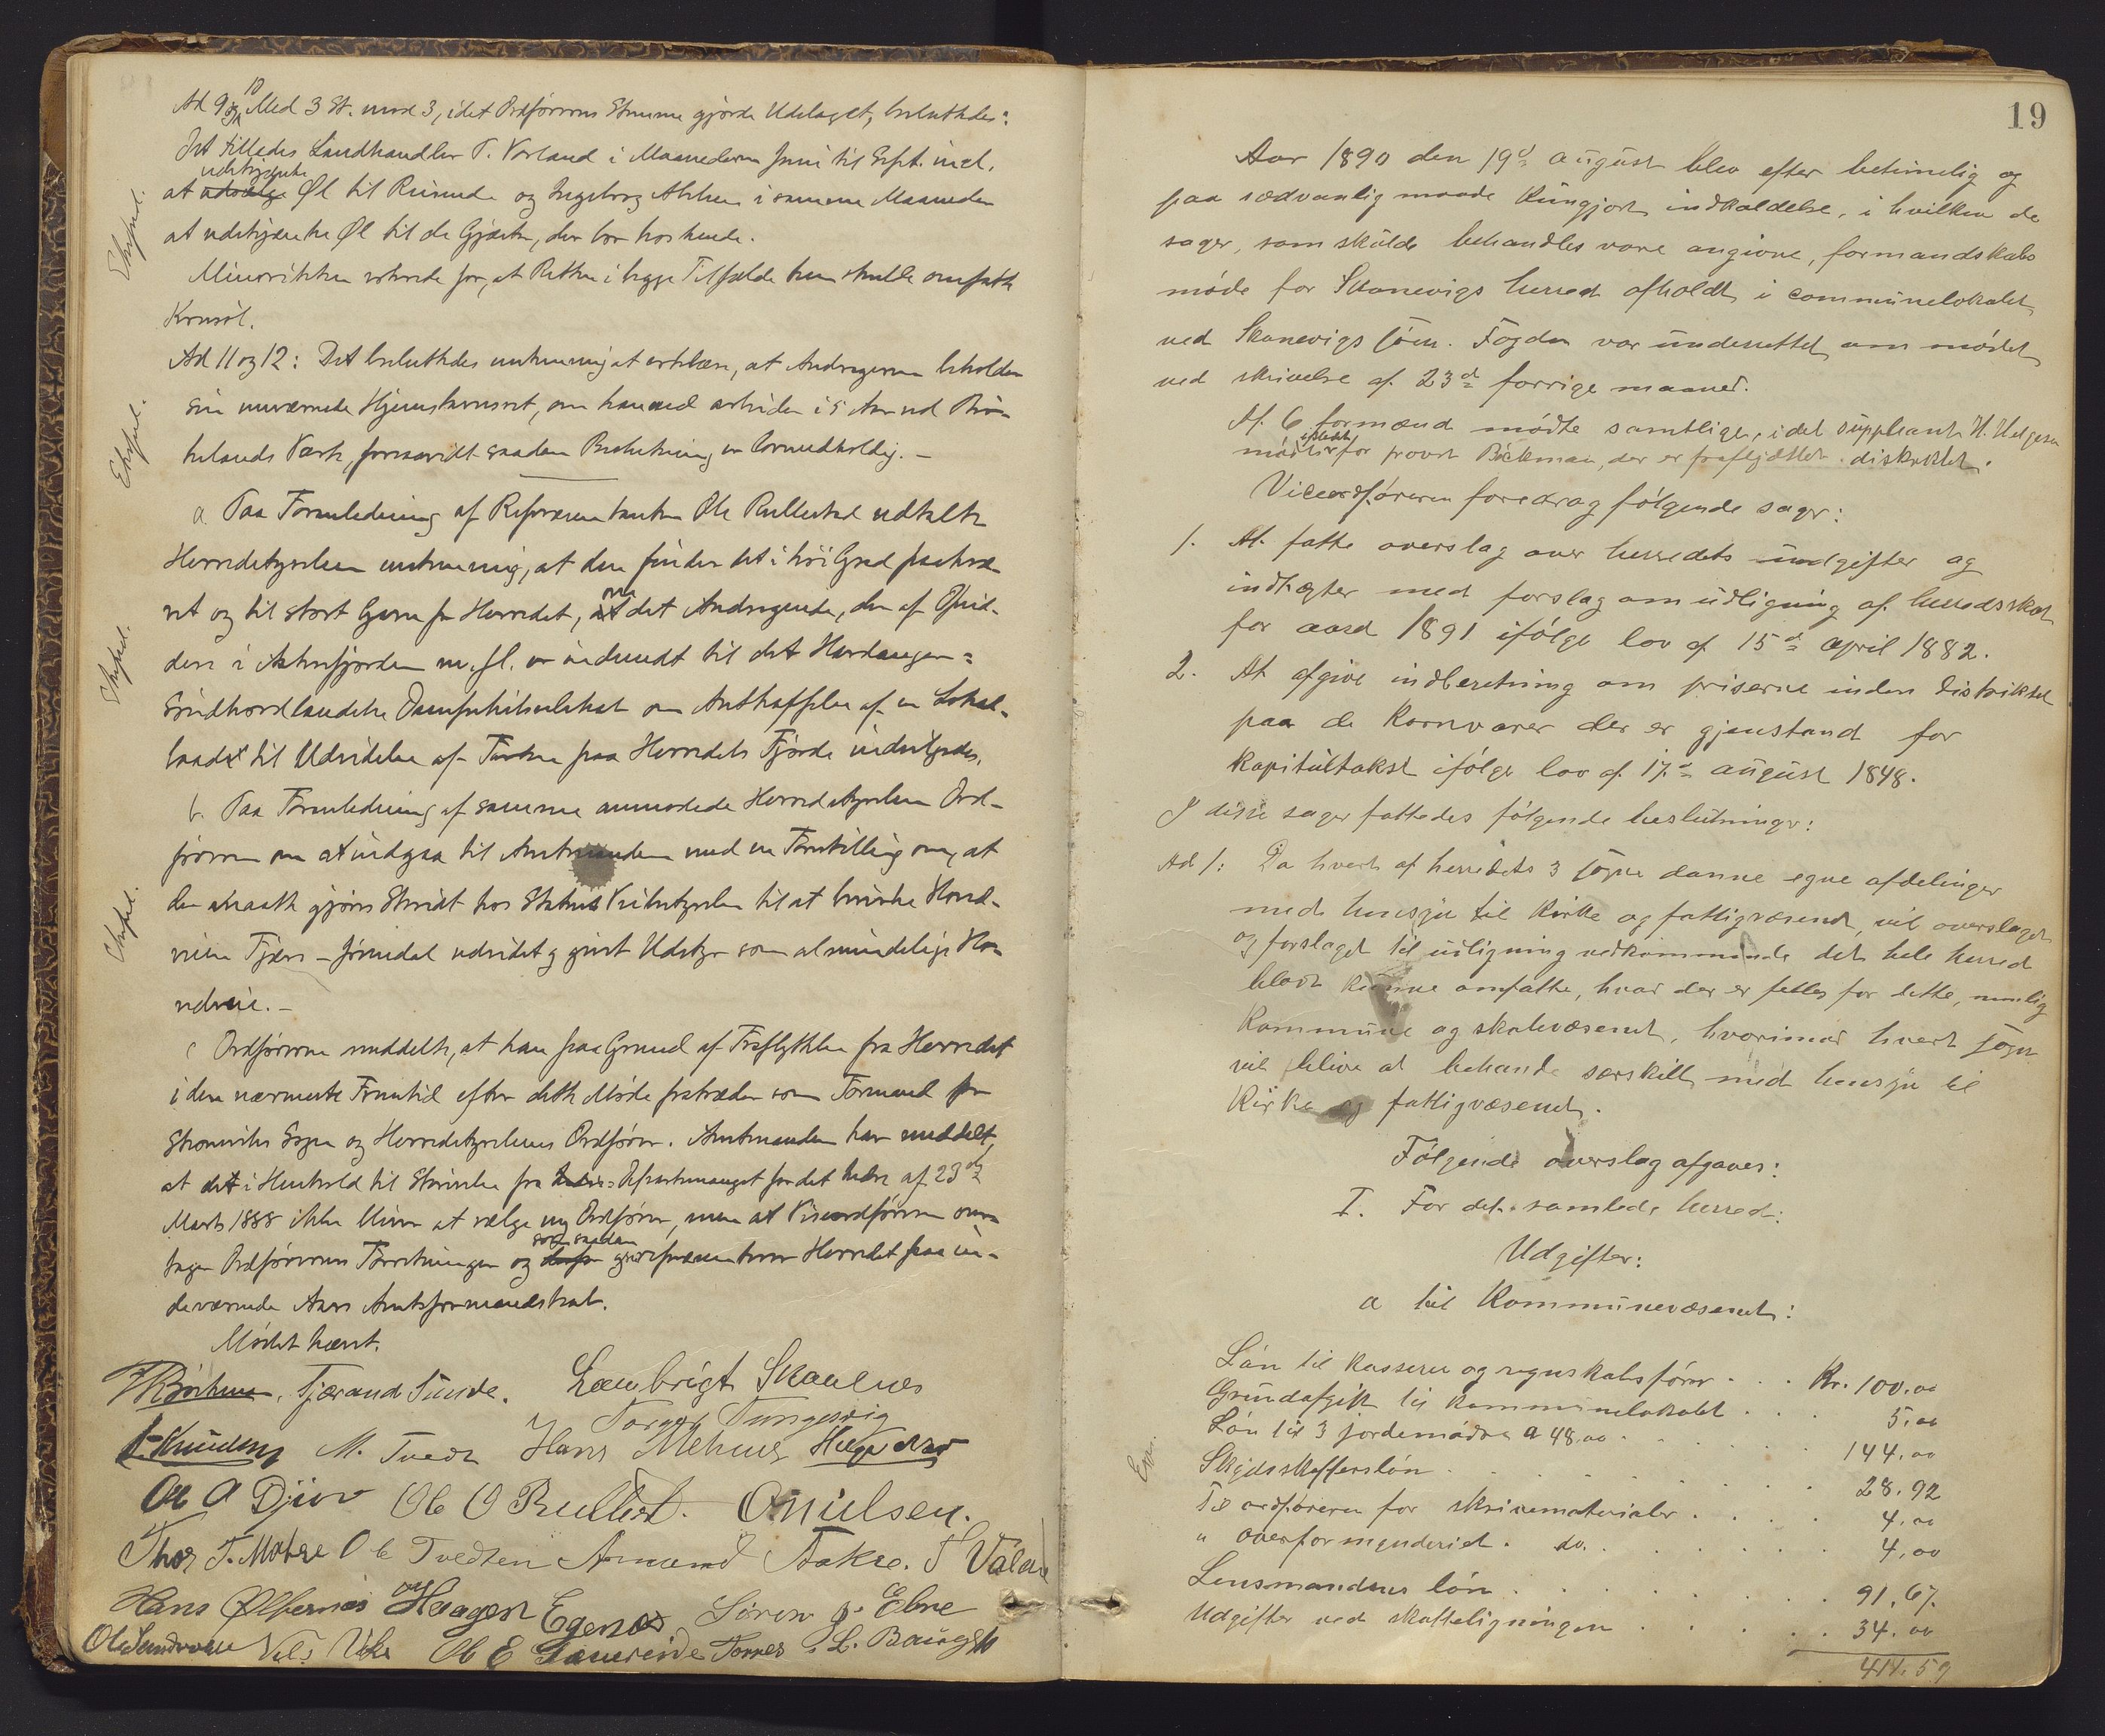 Ad 9 og 10 Med 3 St. mod 3, idet Ordførerens Stemme gjorde Udslaget, besluttedes:
Det tilledes Landhandler T. Varland i Maanederne Juni til Sept. incl.
at udskjænke Øl til Reisende og Ingeborg i samme Maaneder
at udskjænke Øl til de Gjæster, der bor hos hende.
Minoriteten voterede for, at Retten i begge Tilfælde kun skulde omfatte
Ad 11 og 12: Det besluttedes enstemmig at erklære, at Andragerne beholder
sin nuværende Hjemstavnsret, om han ved arbeider i 5 Aar ved
Værk, forsaavidt saadan Beslutning er lovmedholdig. –
Exped.
Exped.
Exped.
Exped.
a Paa Foranledning af Repræsentanten Ole Rullestad udtalte
Herredstyrelsen enstemmig, at den finder det i høi Grad paakræ-
vet og til stort Gavn for Herredet, om det Andragende, der af Opsid-
dere i Aakrefjorden m. fl. er indsendt til det Hardanger=
Søndhordlandske Dampskibsselskab om Anskaffelse af en Lokal-
baad til Udvidelse af paa Herredets Fjorde indvilgedes.
b. Paa Foranledning af samme anmodede Herredstyrelsen Ord-
føreren om at indgaa til Amtmanden med en Forestilling om, at
der maatte gjøres Skridt hos Statens Veibestyrelse til at
veien Fjære – Jøsendal udvidet og givet Udstyr som almindelig Ho-
vedvei. –
c Ordføreren meddelte, at han paa Grund af Fraflyttelse fra Herredet
i den nærmeste Fremtid efter dette Møde fratræder som Formand for
Skoneviks Sogn og Herredstyrelsens Ordfører. Amtmanden har meddelt,
at det i Henhold til Skrivelse fra Departementet for det Indre af 23de
Marts 1888 ikke bliver at vælge ny Ordfører, men at Viseordføreren over-
tager Ordførerens Forretninger og som saadan repræsenterer Herredet paa in-
deværende Aars Amtsformandskab.
Mødet hævet.
Bøckman, Tjærand Tunde. Lambrigt Skaalnes
Torger Tungesvig
Knudsen M. Tvedt Hans Mehus Helge
Ole A Djuv Ole O Rullest. O Nielsen.
Thor T. Matre Ole Tvedten Amund Aakre. T Valan
Hans Ølfernæs Haagen Egenæs Søren J. Ebne
Ole Sundvor Nels Vika Ole E Tornes L. Baugst
19
Aar 1890 den 19de august blev efter betimelig og
paa sædvanlig maade kungjort indkaldelse, i hvilken de
sager, som skulde behandles vare angivne, formandskabs
møde for Skonevigs herred afholdt i communelokalet
ved Skonevigs søen. Fogden var underrettet om mødet
ved skrivelse af 23de forrige maaned.
Af 6 formænd mødte samtlige, idet suppleant H. Helgesen
mødte istedetfor provst Böckman, der er fraflyttet distriktet.
Viceordføreren foredrag følgende sager:
1. At fatte overslag over herredets udgifter og
indtægter med forslag om udligning af herredsskat
for aaret 1891 ifølge lov af 15de april 1882.
2. At afgive indberetning om priserne inden distriktet
paa de kornvarer der er gjenstand for
kapitultakst ifølge lov af 17de august 1848.
I disse sager fattedes følgende beslutninger:
Ad 1: Da hvert af herredets 3 sogne danne egne afdelinger
med hensyn til kirke og fattigvæsenet, vil overslaget
og forslaget til udligning vedkommende det hele herred
blodt kunne omfatte, hvad der er felles for dette, nemlig
Kommune og skolevæsenet, hvorimod hvert sogn
vil blive at behandle særskilt med hensyn til
Kirke og fattigvæsenet.
Følgende overslag afgaves:
I. For det samlede herred:
Udgifter:
a til Kommunevæsenet:
Løn til kasserer og regnskabsfører . . . Kr. 100.00
Grundafgift til kommunelokalet . . . 5.00
Løn til 3 jordemødre a 48.00 . . . 144.00
Skydsskafferløn . . . 28.92
Til ordføreren for skrivematerialer . . . 4.00
" overformynderiet . do. . . . 4.00
Lensmandens løn . . . 91.67.
Udgifter ved skatteligningen . . . 34.00
411.59